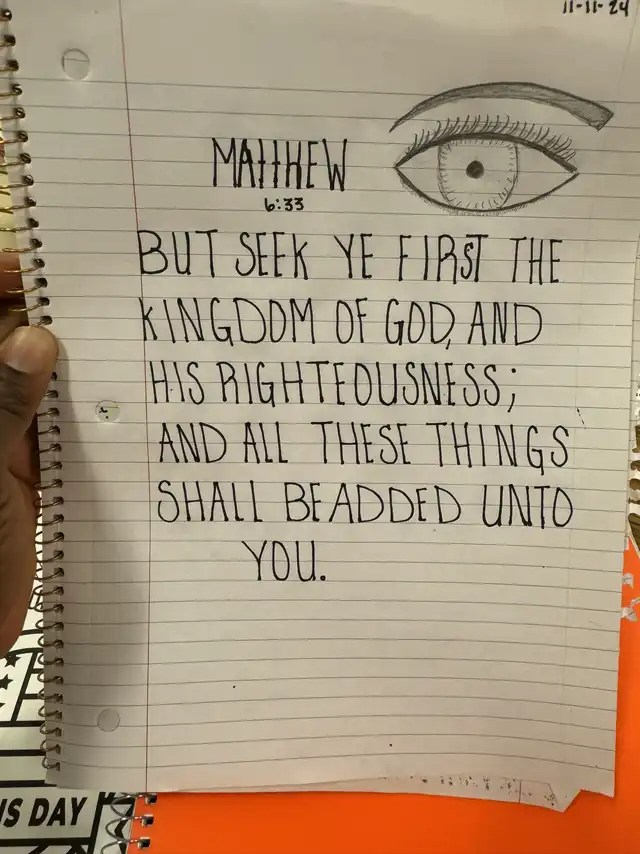 11-11-24
MATTHEW
6:33
BUT SEEK YE FIRST THE
KINGDOM OF GOD, AND
HIS RIGHTEOUSNESS;
AND ALL THESE THINGS
SHALL BE ADDED UNTO
YOU.
IS DAY